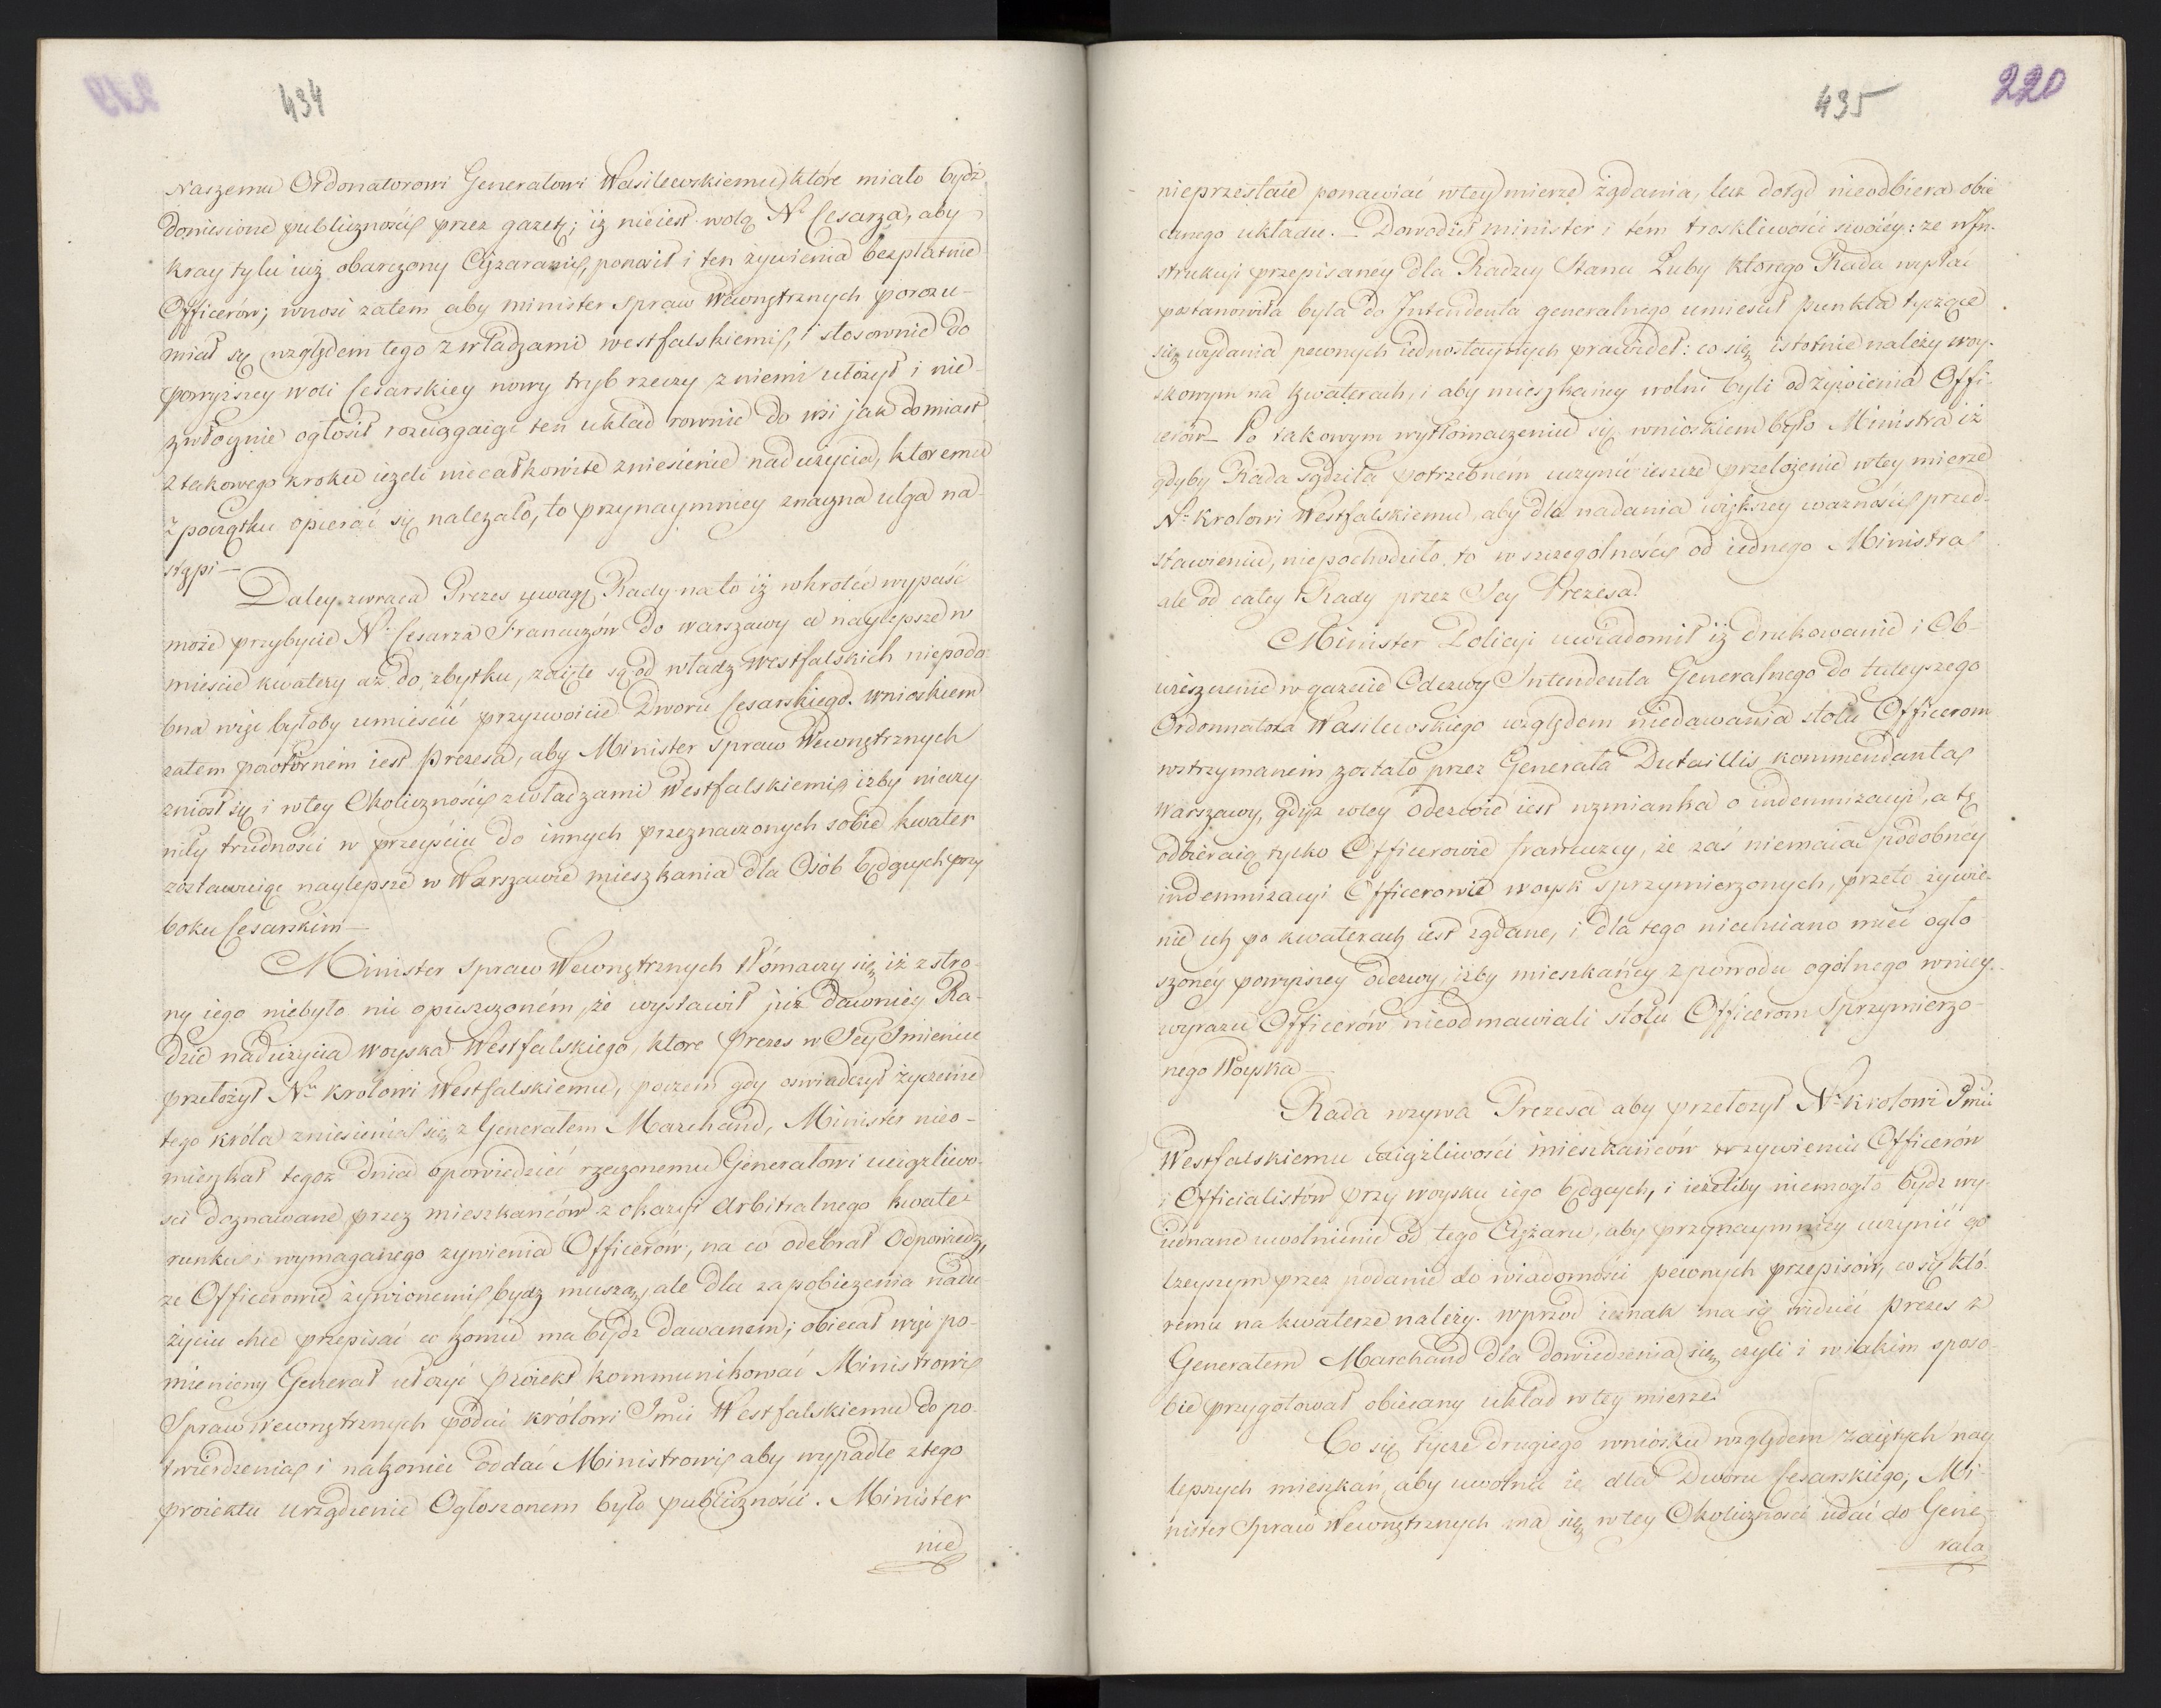 434
Naszemu Ordonatorowi Generałowi Wasilewskiemu, które miało bydź
doniesione publiczności przez gazetę; iż nieiest wolą Nº Cesarza, aby
kray tylu iuż obarczony Ciężarami, ponosił i ten żywienia bezpłatnie
Officerów; wnosi zatem aby minister Spraw Wewnętrznych porozu-
miał się względem tego z władzami westfalskiemi, i stosownie do
powyższey woli Cesarskiey nowy tryb rzeczy z niemi ułożył i nie-
zwłocznie ogłosił rozciągaiąc ten układ rownie do wsi jak do miast
z takowego kroku ieżeli niecałkowite zniesienie nadużycia, ktoremu
z początku opierać się należało, to przynaymniey znaczna ulga na-
stąpi —
Daley zwraca Prezes uwagę Rady na to iż wkrotce wypaść
może przybycie Nº Cesarza Francuzów do Warszawy a naylepsze w
mieście kwatery aż do zbytku, zaięte są od władz westfalskich niepodo-
bna więc byłoby umieścić przyzwoicie Dworu Cesarskiego. Wnioskiem
zatem powtórnem iest Prezesa, aby Minister Spraw Wewnętrznych
zniosł się i w tey Okoliczności z władzami Westfalskiemi iżby nieczy-
niły trudności w przeyściu do innych przeznaczonych sobie kwater
zostawuiąc naylepsze w Warszawie mieszkania dla Osób będących przy
boku Cesarskim —
Minister Spraw Wewnętrznych tłómaczy się iż z stro-
ny iego niebyło nic opuszczoném, że wystawił już dawniey Ra-
dzie nadużycia woyska Westfalskiego, ktore Prezes w Jey Imieniu
przełożył Nº Krolowi Westfalskiemu, poczem gdy oświadczył życzenie
tego króla zniesienia się z Generałem Marchand, Minister nieo-
mieszkał tegoż dnia opowiedzieć rzeczonemu Generałowi uciążliwo-
ści doznawane przez mieszkańców z okazyi arbitralnego kwate-
runku i wymaganego żywienia Officerów, na co odebrał Odpowiedź,
że Officerowie żywionemi bydź muszą, ale dla zapobieżenia nadu-
życiu chce przepisać co komu ma bydź dawanem; obiecał więc po-
mieniony Generał ułożyć proiekt kommunikować Ministrowi
Spraw Wewnętrznych podać królowi Jmci Westfalskiemu do po-
twierdzenia i nakoniec oddać Ministrowi aby wypadłe z tego
proiektu urządzenie Ogłoszonem było publiczności. Minister
nie
435
220
nieprzestaie ponawiać w tey mierze żądania, lecz dotąd nieodbiera obie-
canego układu. — Dowodził minister i tém troskliwości swoiéy: ze w In-
strukcyi przepisanéy dla Radzcy Stanu Łuby ktorego Rada wysłać
postanowiła była do Intendenta generalnego umieścił punkta tyczące
się wydania pewnych iednostaynych prawideł: co się istotnie należy woy-
skowym na kwaterach, i aby mieszkańcy wolni byli od żywienia Offi-
cerów — Po takowym wytłómaczeniu się wnioskiem było Ministra iż
gdyby Rada sądziła potrzebnem uczynić ieszcze przełożenie w tey mierze
Nº Krolowi Westfalskiemu, aby dla nadania większey ważności przed-
stawieniu, niepochodziło to w szczególności od iednego Ministra
ale od całey Rady przez Jey Prezesa.
Minister Policyi uwiadomił iż drukowanie i Ob-
wieszczenie w gazecie Odezwy Intendenta Generalnego do tuteyszego
Ordonnatora Wasilewskiego względem niedawania stołu Officerom
wstrzymanem zostało przez Generała Dutaillis kommendanta
Warszawy, gdyż w tey odezwie iest wzmianka o indemnizacyi, a tę
odbieraią tylko Officerowie francuzcy, że zaś niemaiąc podobnéy
indemnizacyi Officerowie woysk sprzymierzonych, przeto żywie-
nie ich po kwaterach iest żądane, i dla tego niechciano mieć ogło-
szonéy powyższey odezwy iżby mieszkańcy z powodu ogólnego w niey
wyrazu Officerów nieodmawiali stołu Officerom Sprzymierzo-
nego Woyska —
Rada wzywa Prezesa aby przełożył Nº Krolowi Jmci
Westfalskiemu uciążliwości mieszkańców w żywieniu Officerów
i Officialistów przy woysku iego będących, i ieżeliby niemogło bydź wy-
iednane uwolnienie od tego Ciężaru, aby przynaymniey uczynić go
lżeyszym przez podanie do wiadomości pewnych przepisów, co się któ-
remu na kwaterze należy. wprzód iednak ma się widzieć Prezes z
Generałem Marchand dla dowiedzenia się, czyli i w iakim sposo-
bie przygotował obiecany układ w tey mierze.
Co się tycze drugiego wniosku względem zaiętych nay-
lepszych mieszkań, aby uwolnić ie dla Dworu Cesarskiego; Mi-
nister Spraw Wewnętrznych ma się w tey Okoliczności udać do Gene-
rała